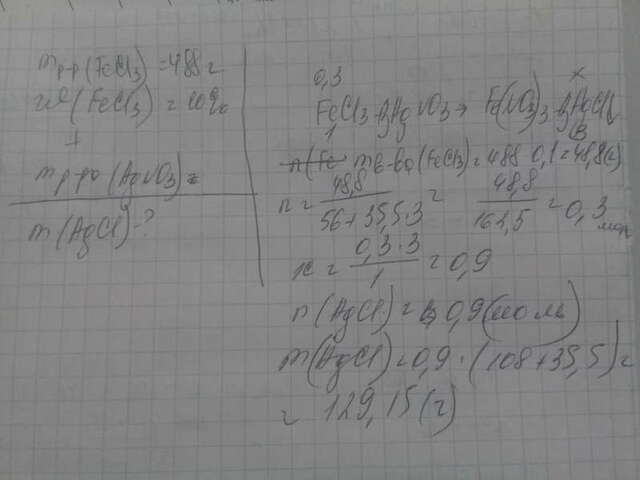 mр-р (FeCl3) = 488 г
ω (FeCl3) = 10%
+
mр-ра (AgNO3) =
m (AgCl) - ?
0,3 x
FeCl3 + 3AgNO3 → Fe(NO3)3 + 3AgCl↓
1 3
n(Fe mв-ва (FeCl3) = 488 · 0,1 = 48,8 (г)
n = 48,8 / 56+35,5·3 = 48,8 / 162,5 = 0,3 моль
x = 0,3 · 3 / 1 = 0,9
n (AgCl) = 0,9 (моль)
m (AgCl) = 0,9 · (108+35,5) =
= 129,15 (г)